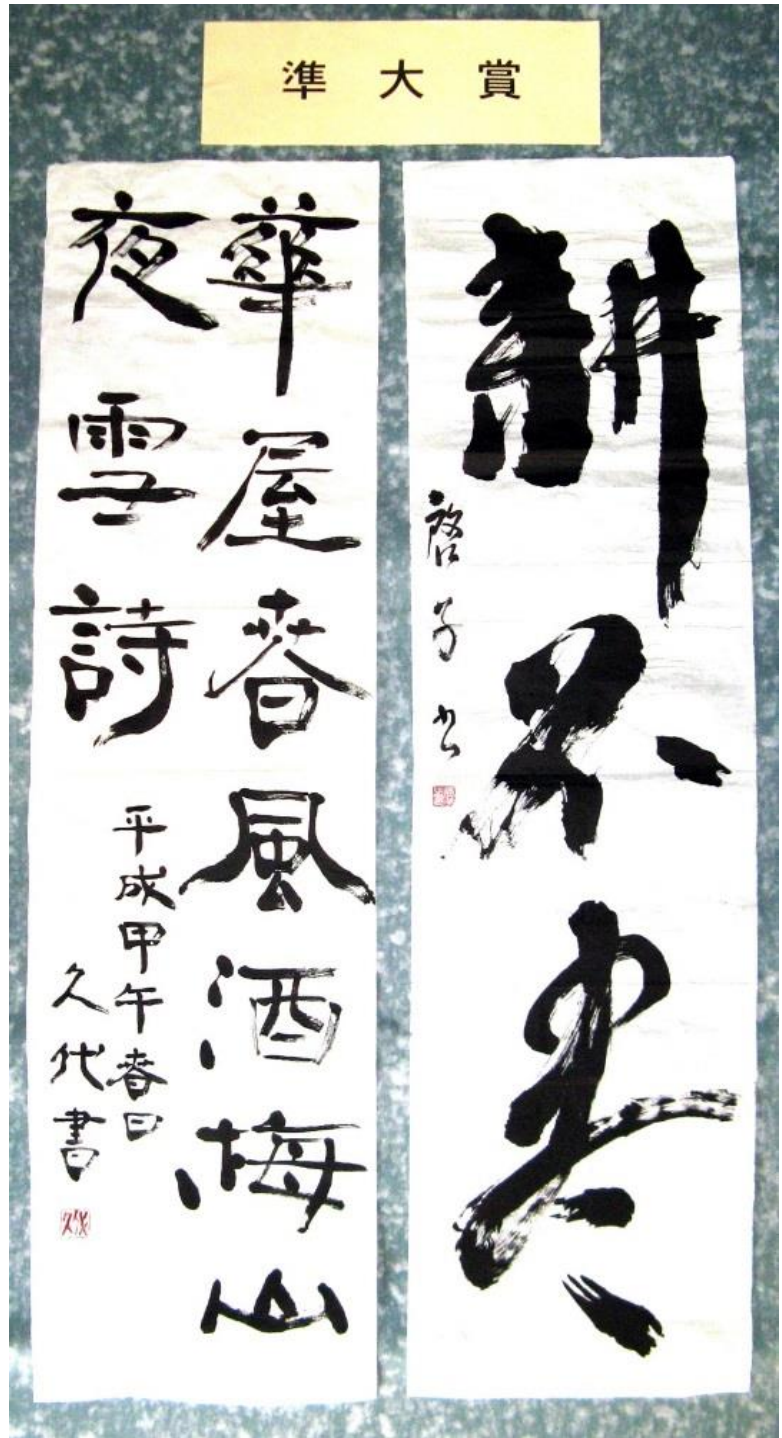 準大賞
不尽
啓 書
華屋春風酒梅山
夜雪詩
平成甲午春日
久代書